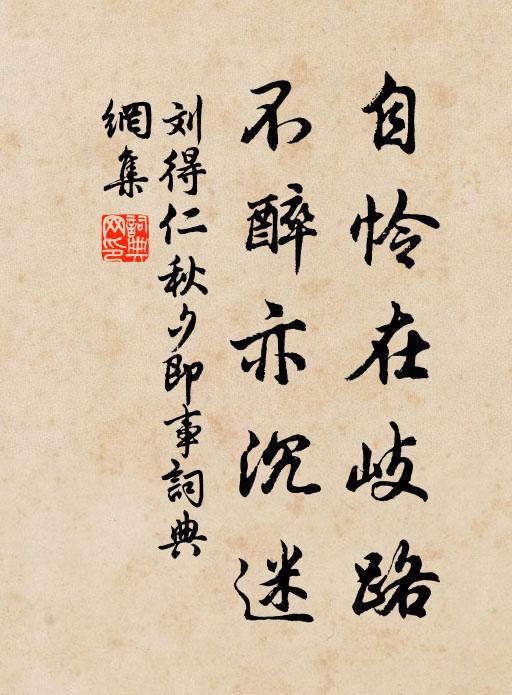 自怜在岐路
不醉亦沉迷
刘得仁秋夕即事詞典
網集
詞典
网印